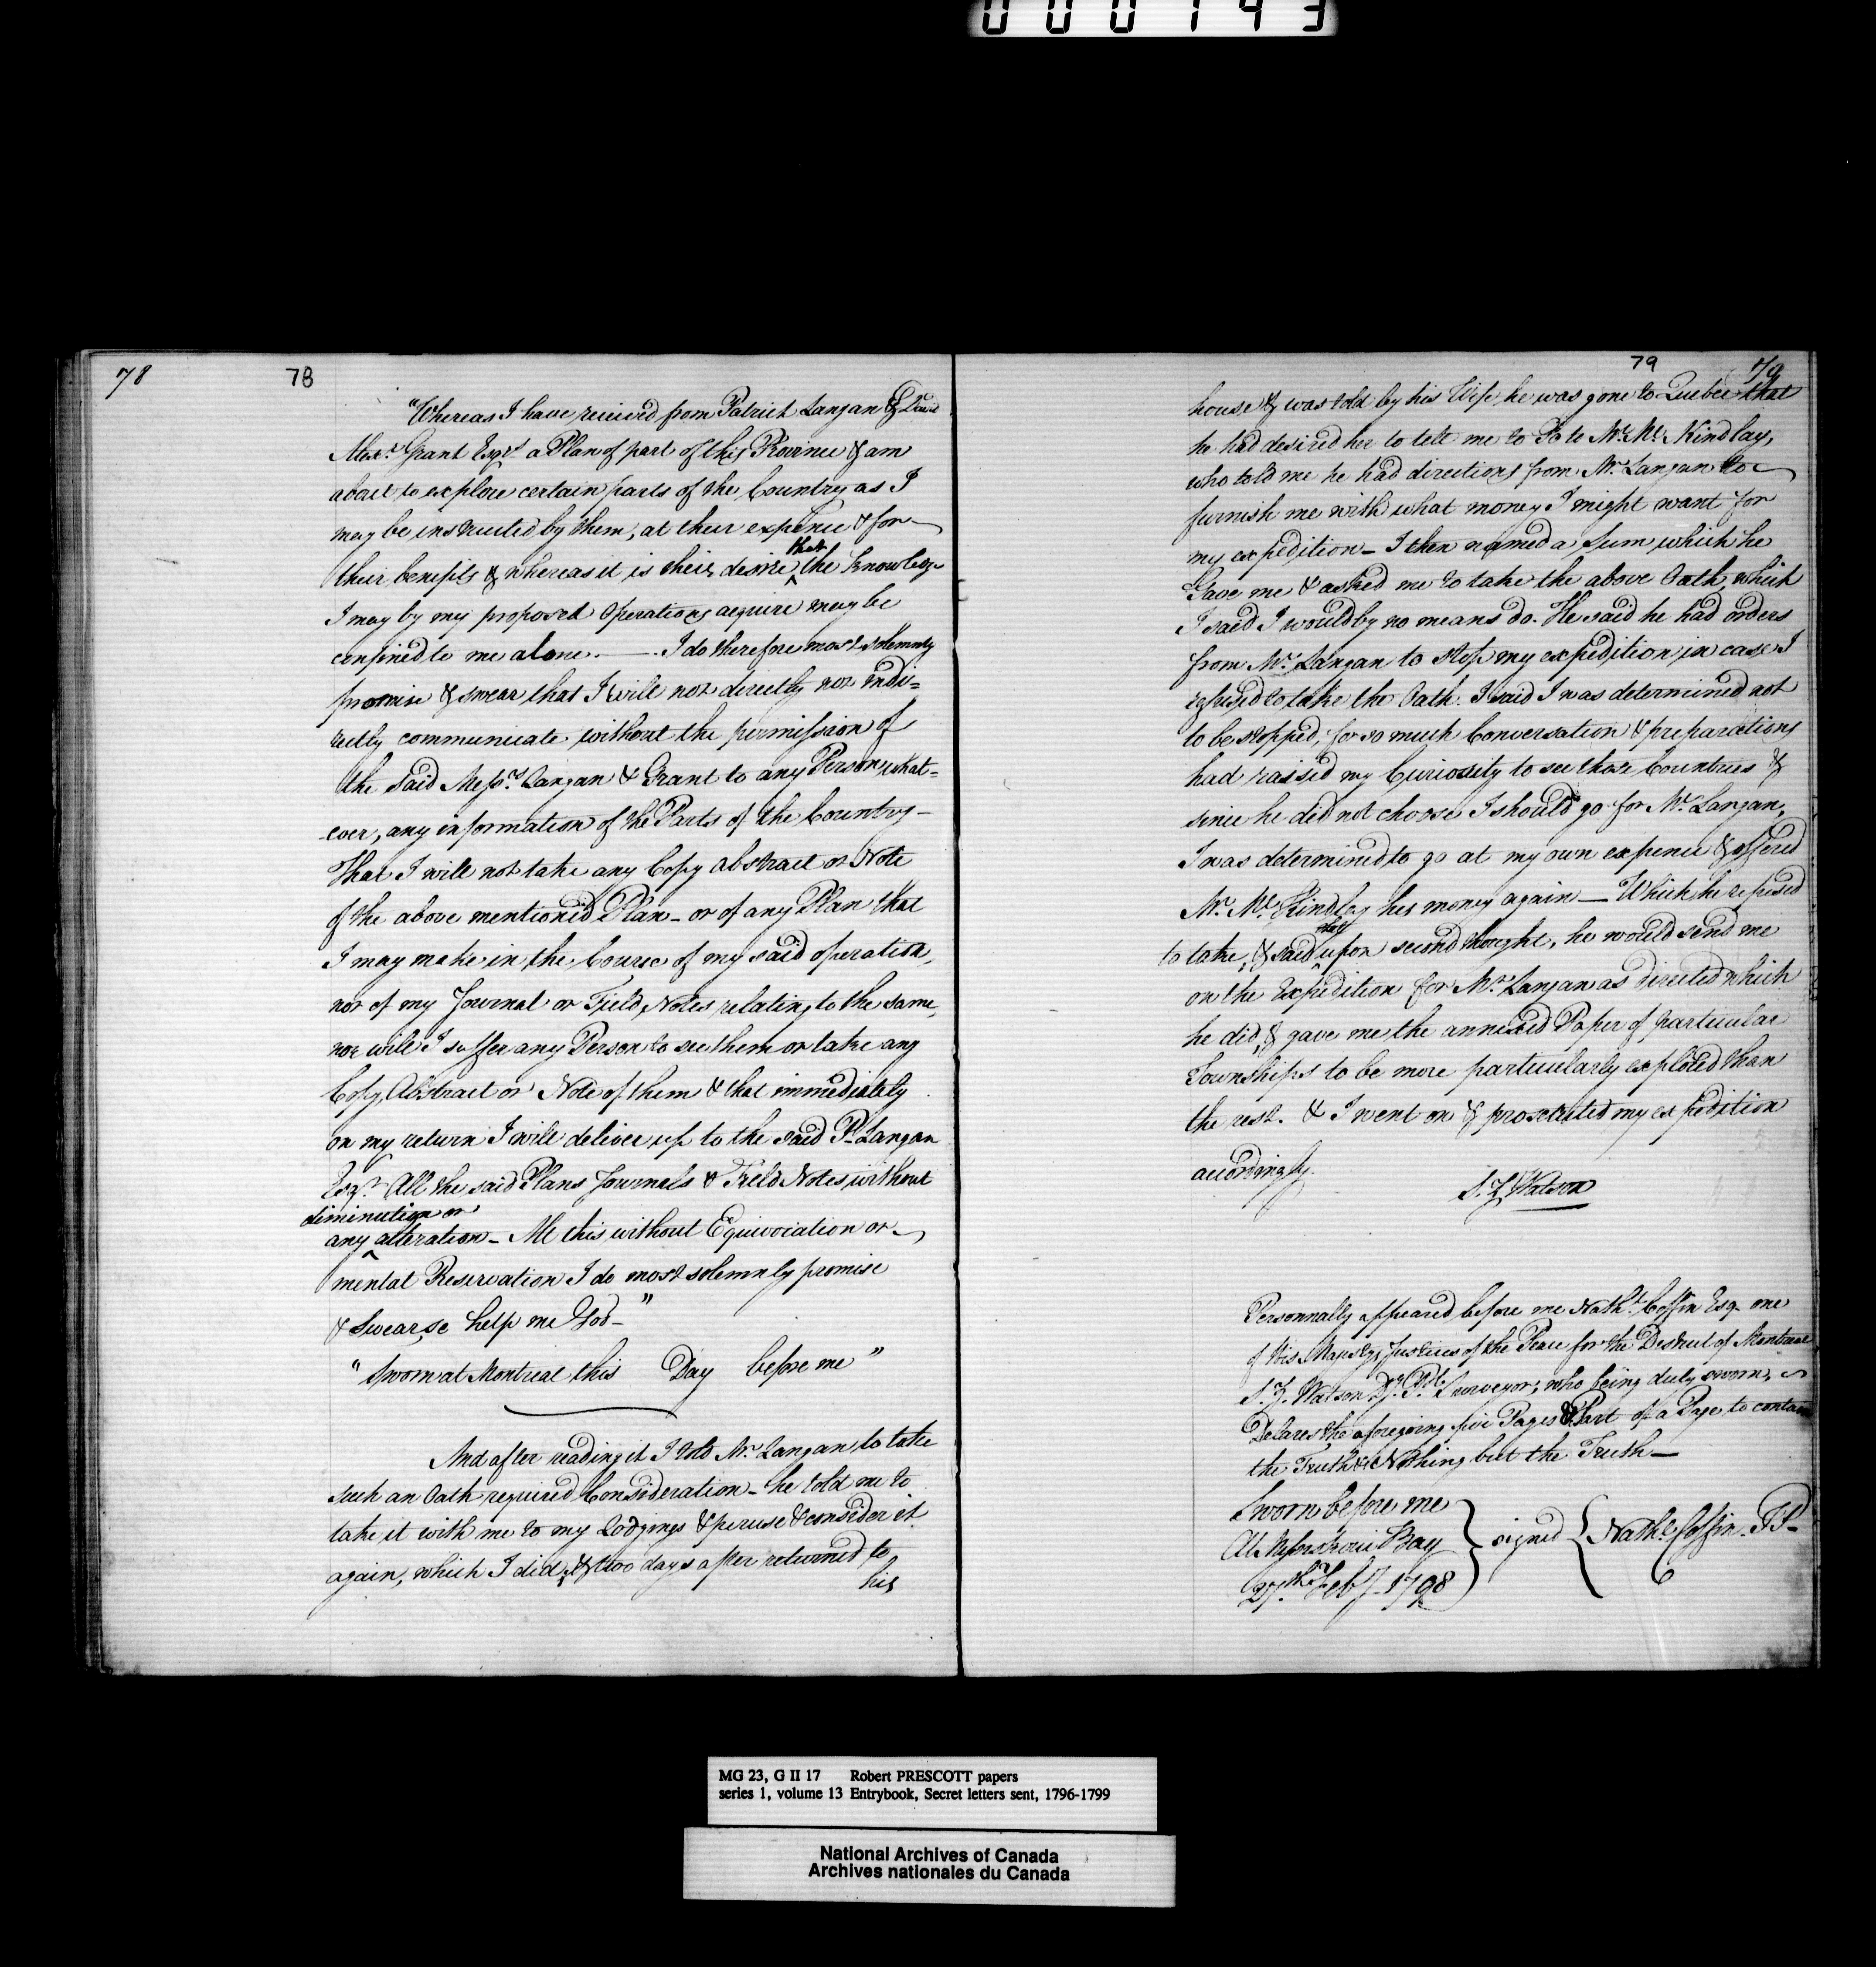 000143
78
78
"Whereas I have received from Patrick Langan & David
Alexr. Grant Esqrs. a Plan of part of this Province & am
about to explore certain parts of the Country as I
may be instructed by them, at their expence & for
that
their benefits & whereas it is their desire ^ the knowledge
I may by my proposed Operations acquire may be
confined to me alone. —. I do therefore most solemnly
promise & swear that I will not directly nor indi=
rectly communicate without the permission of
the said Messrs. Langan & Grant to any Person what=
ever, any information of the Parts of the Country –
That I will not take any Copy Abstract or Note
of the above mention'd Plan – or of any Plan that
I may make in the Course of my said operation,
nor of my Journal or Field Notes relating to the same,
nor will I suffer any Person to see them or take any
Copy, Abstract or Note of them & that immediately
on my return I will deliver up to the said P. Langan
Esqr. All the said Plans Journals & Field Notes, without
diminution or
any ^ alteration – All this without Equivocation or
mental Reservation I do most solemnly promise
& Swear, so help me God – "
" Sworn at Montreal this Day before me "
And after reading it I told Mr. Langan, to take
such an Oath required Consideration – he told me to
take it with me to my Lodgings & peruse & consider it
again, which I did, & two days after returned to
his
79
79
house & was told by his Wife he was gone to Quebec that
he had desired her to tell me to Go to Mr. Mc. Kindlay,
who told me he had directions from Mr. Langan to
furnish me with what money I might want for
my expedition – I then named a sum which he
Gave me & asked me to take the above Oath, which
I said I would by no means do. He said he had orders
from Mr. Langan to stop my expedition in case I
refused to take the Oath. I said I was determined not
to be stopped, for so much Conversation & preparations
had raised my Curiosity to see those Countries &
since he did not choose I should go for Mr. Langan,
I was determined to go at my own expence & offered
Mr. Mc. Kindlay his money again — Which he refused
to take, & said ^ upon second thought, he would send me
on the Expedition for Mr. Langan as directed which
he did, & gave me the annexed Paper of particular
Townships to be more particularly explored than
the rest. & I went on & prosecuted my expedition
accordingly.
S. Z. Watson
Personnally appeared before me Nathl. Coffin Esq. one
of His Majestys Justices of the Peace for the District of Montreal
S. Z. Watson Dy. Pl. Surveyor, who being duly sworn,
Declares the aforegoing five Pages & Part of a Page to contain
the Truth & Nothing but the Truth —
Sworn before me
At Missiskoui Bay } signed { Nathl. Coffin. JP
27th. Feby. 1798
MG 23, G II 17 Robert PRESCOTT papers
series 1, volume 13 Entrybook, Secret letters sent, 1796-1799
National Archives of Canada
Archives nationales du Canada